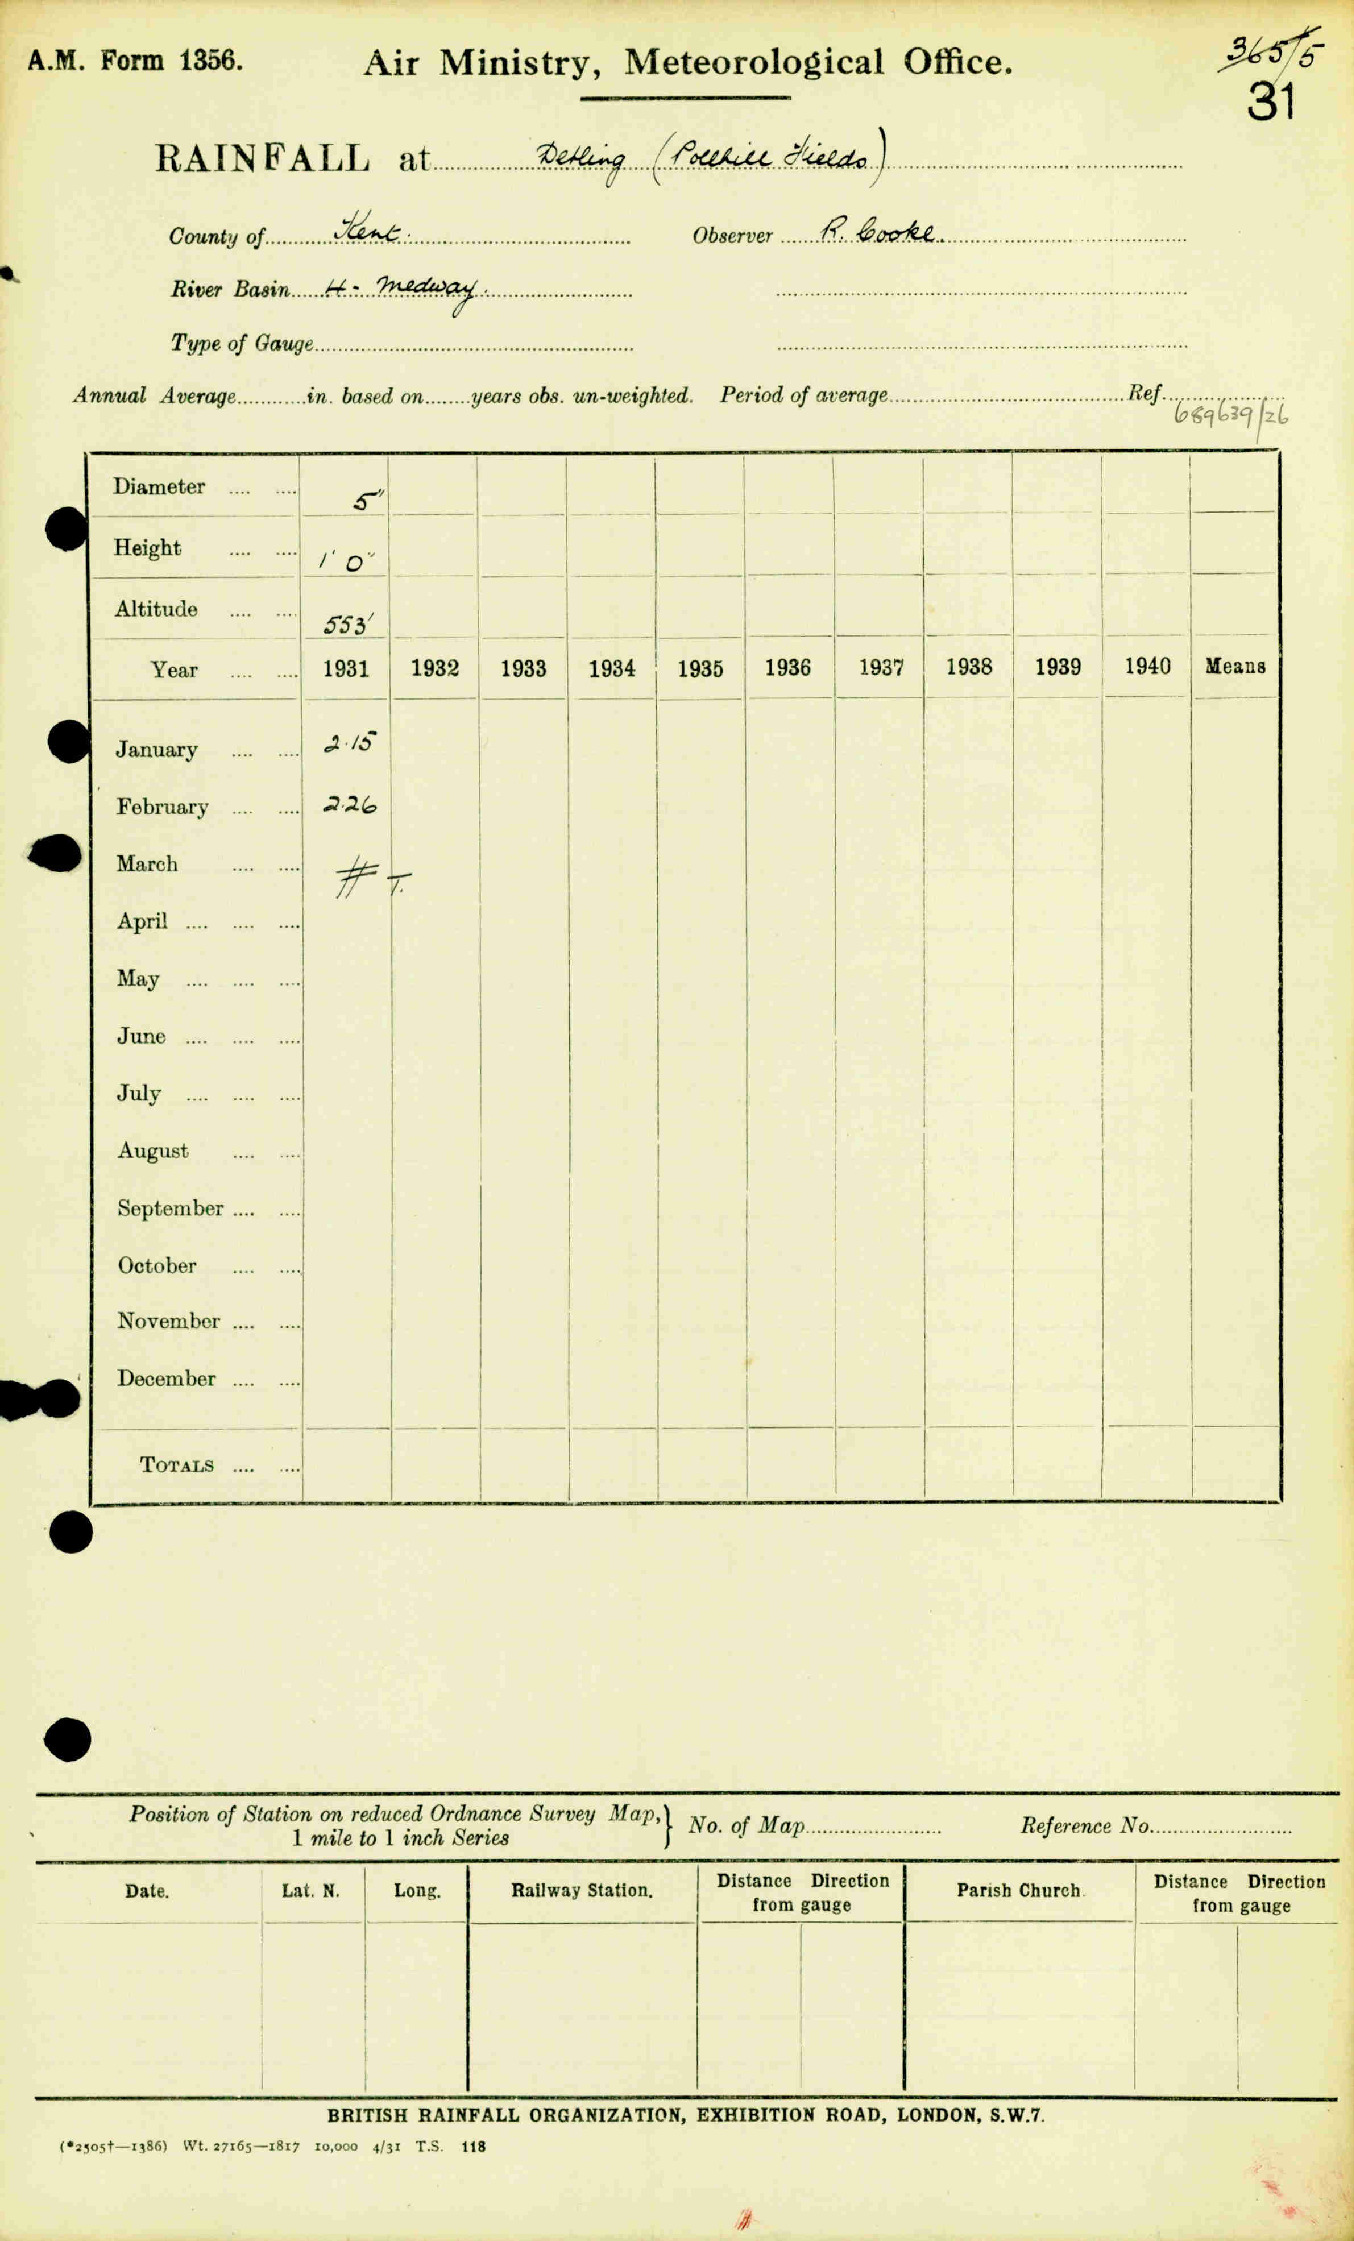 A.M. Form 1356.
Air Ministry, Meteorological Office.
365/5
31
RAINFALL at Detling (Pollhill Fields)
County of Kent. Observer R. Cooke
River Basin H - Medway.
Type of Gauge
Annual Average in. based on years obs. un-weighted. Period of average Ref.
689639/26
Diameter 5"
Height 1' 0"
Altitude 553'
Year 1931 1932 1933 1934 1935 1936 1937 1938 1939 1940 Means
January 2.15
February 2.26
March # T.
April
May
June
July
August
September
October
November
December
TOTALS
Position of Station on reduced Ordnance Survey Map,} No. of Map Reference No.
1 mile to 1 inch Series
Date. Lat. N. Long. Railway Station. Distance Direction from gauge Parish Church. Distance Direction from gauge
BRITISH RAINFALL ORGANIZATION, EXHIBITION ROAD, LONDON, S.W.7.
(*2505†—1386) Wt. 27165—1817 10,000 4/31 T.S. 118